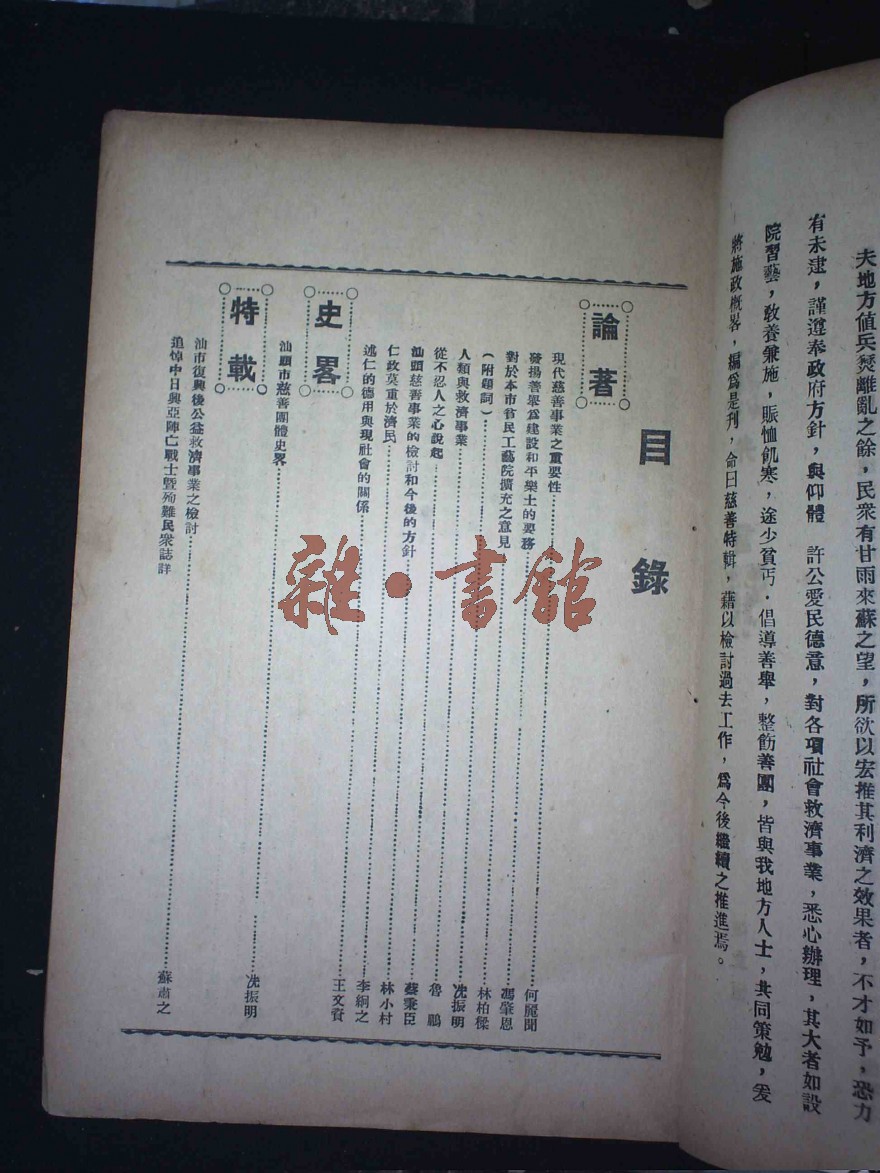 夫地方値兵燹離亂之餘,民衆有甘雨來蘇之望,所欲以宏推其利濟之效果者,不才如予,恐力
有未逮,謹遵奉政府方針,與仰體 許公愛民德意,對各項社會救濟事業,悉心辦理,其大者如設
院習藝,敎養兼施,賑恤飢寒,途少貧丐.倡導善舉,整飭善團,皆與我地方人士,共同策勉,爰
將施政概畧,編爲是刊,命曰慈善特輯,藉以檢討過去工作,爲今後繼續之推進焉。
目錄
論著
現代慈善事業之重要性……何麗聞
發揚善舉爲建設和平樂土的要務……馮肇恩
對於本市貧民工藝院擴充之意見……林柏樑
(附題詞)……冼振明
人類與救濟事業……魯鵬
從不忍人之心說起……蔡秉臣
汕頭慈善事業的檢討和今後的方針……林小村
仁政莫重於濟民……李絅之
述仁的德用與現社會的關係……王文賓
史畧
汕頭市慈善團體史畧……冼振明
特載
汕市復興後公益救濟事業之檢討……蘇肅之
追悼中日興亞陣亡戰士暨殉難民衆誌詳
雜·書館